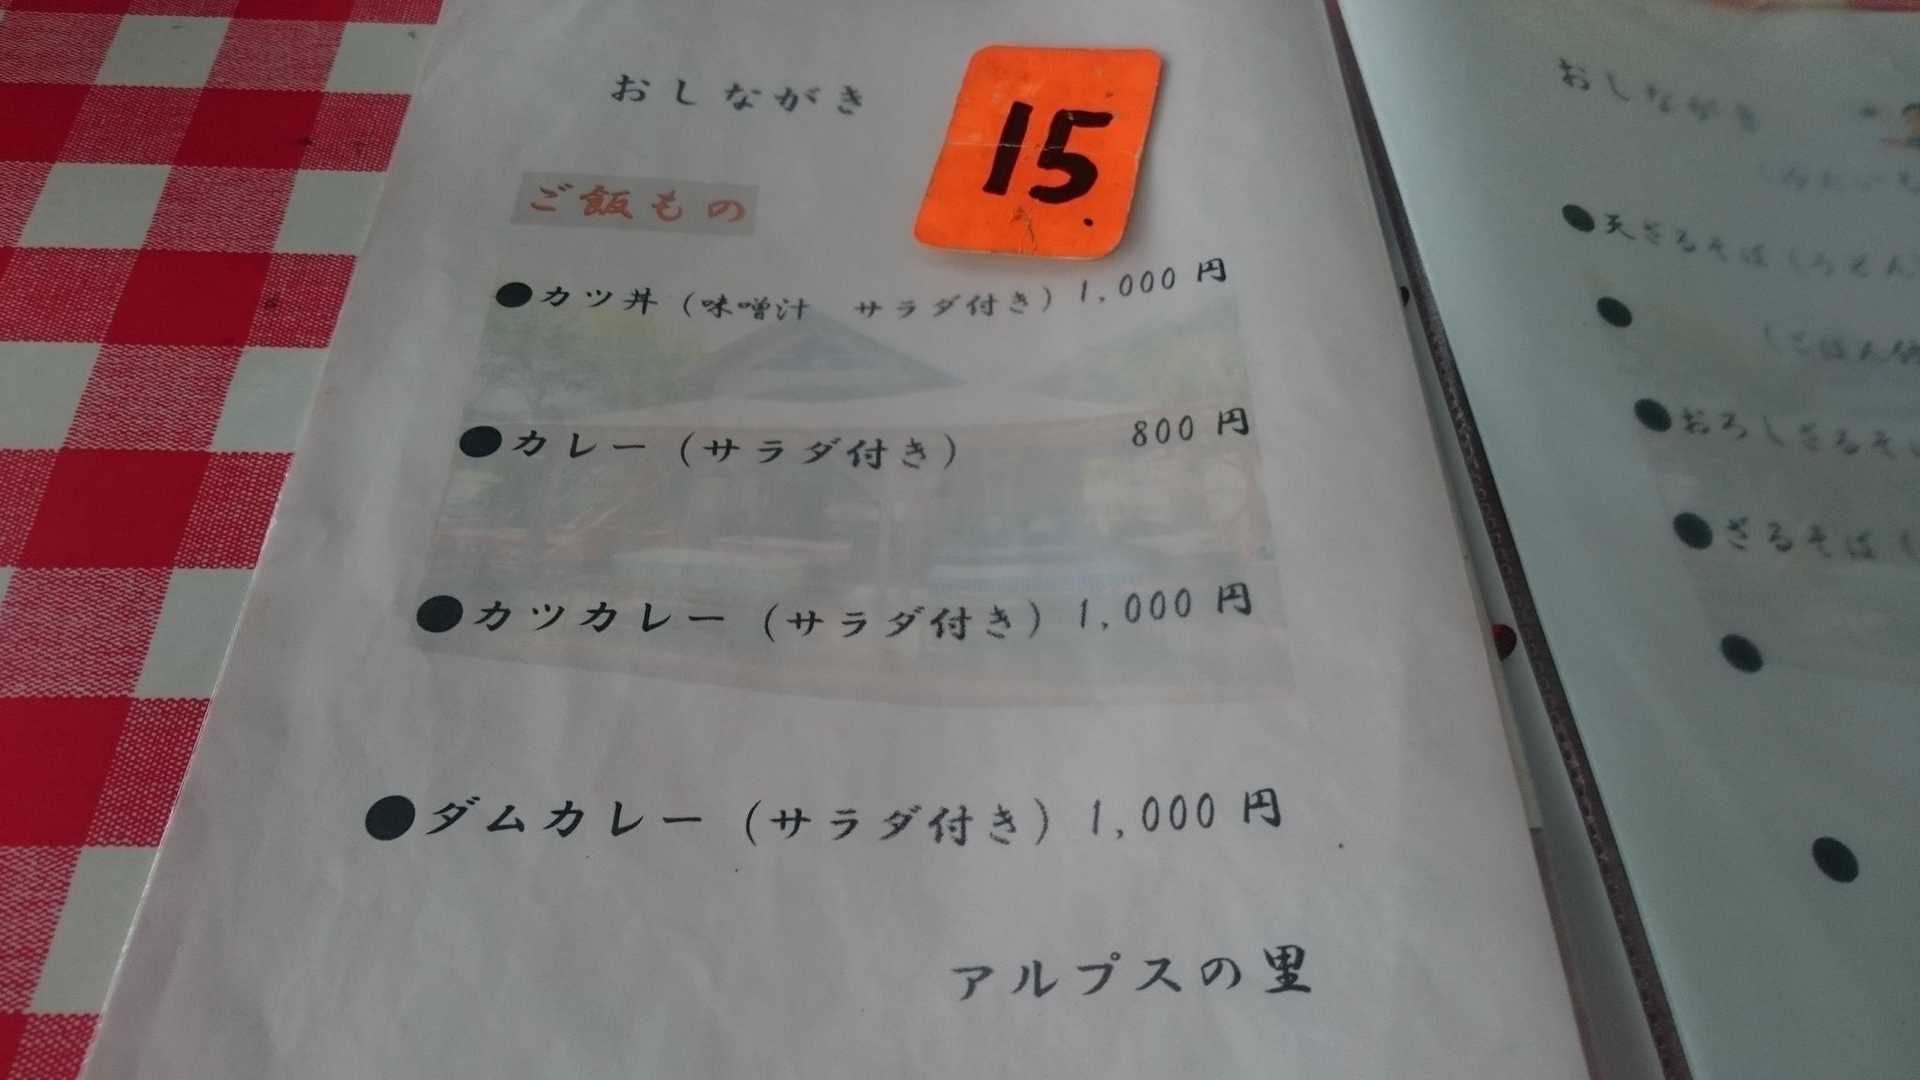 おしながき
15.
ご飯もの
●カツ丼（味噌汁　サラダ付き）1,000 円
●カレー（サラダ付き）　800 円
●カツカレー（サラダ付き）1,000 円
●ダムカレー（サラダ付き）1,000 円
アルプスの里
おしながき
●天ざるそば
●おろしざるそば
●ざるそば